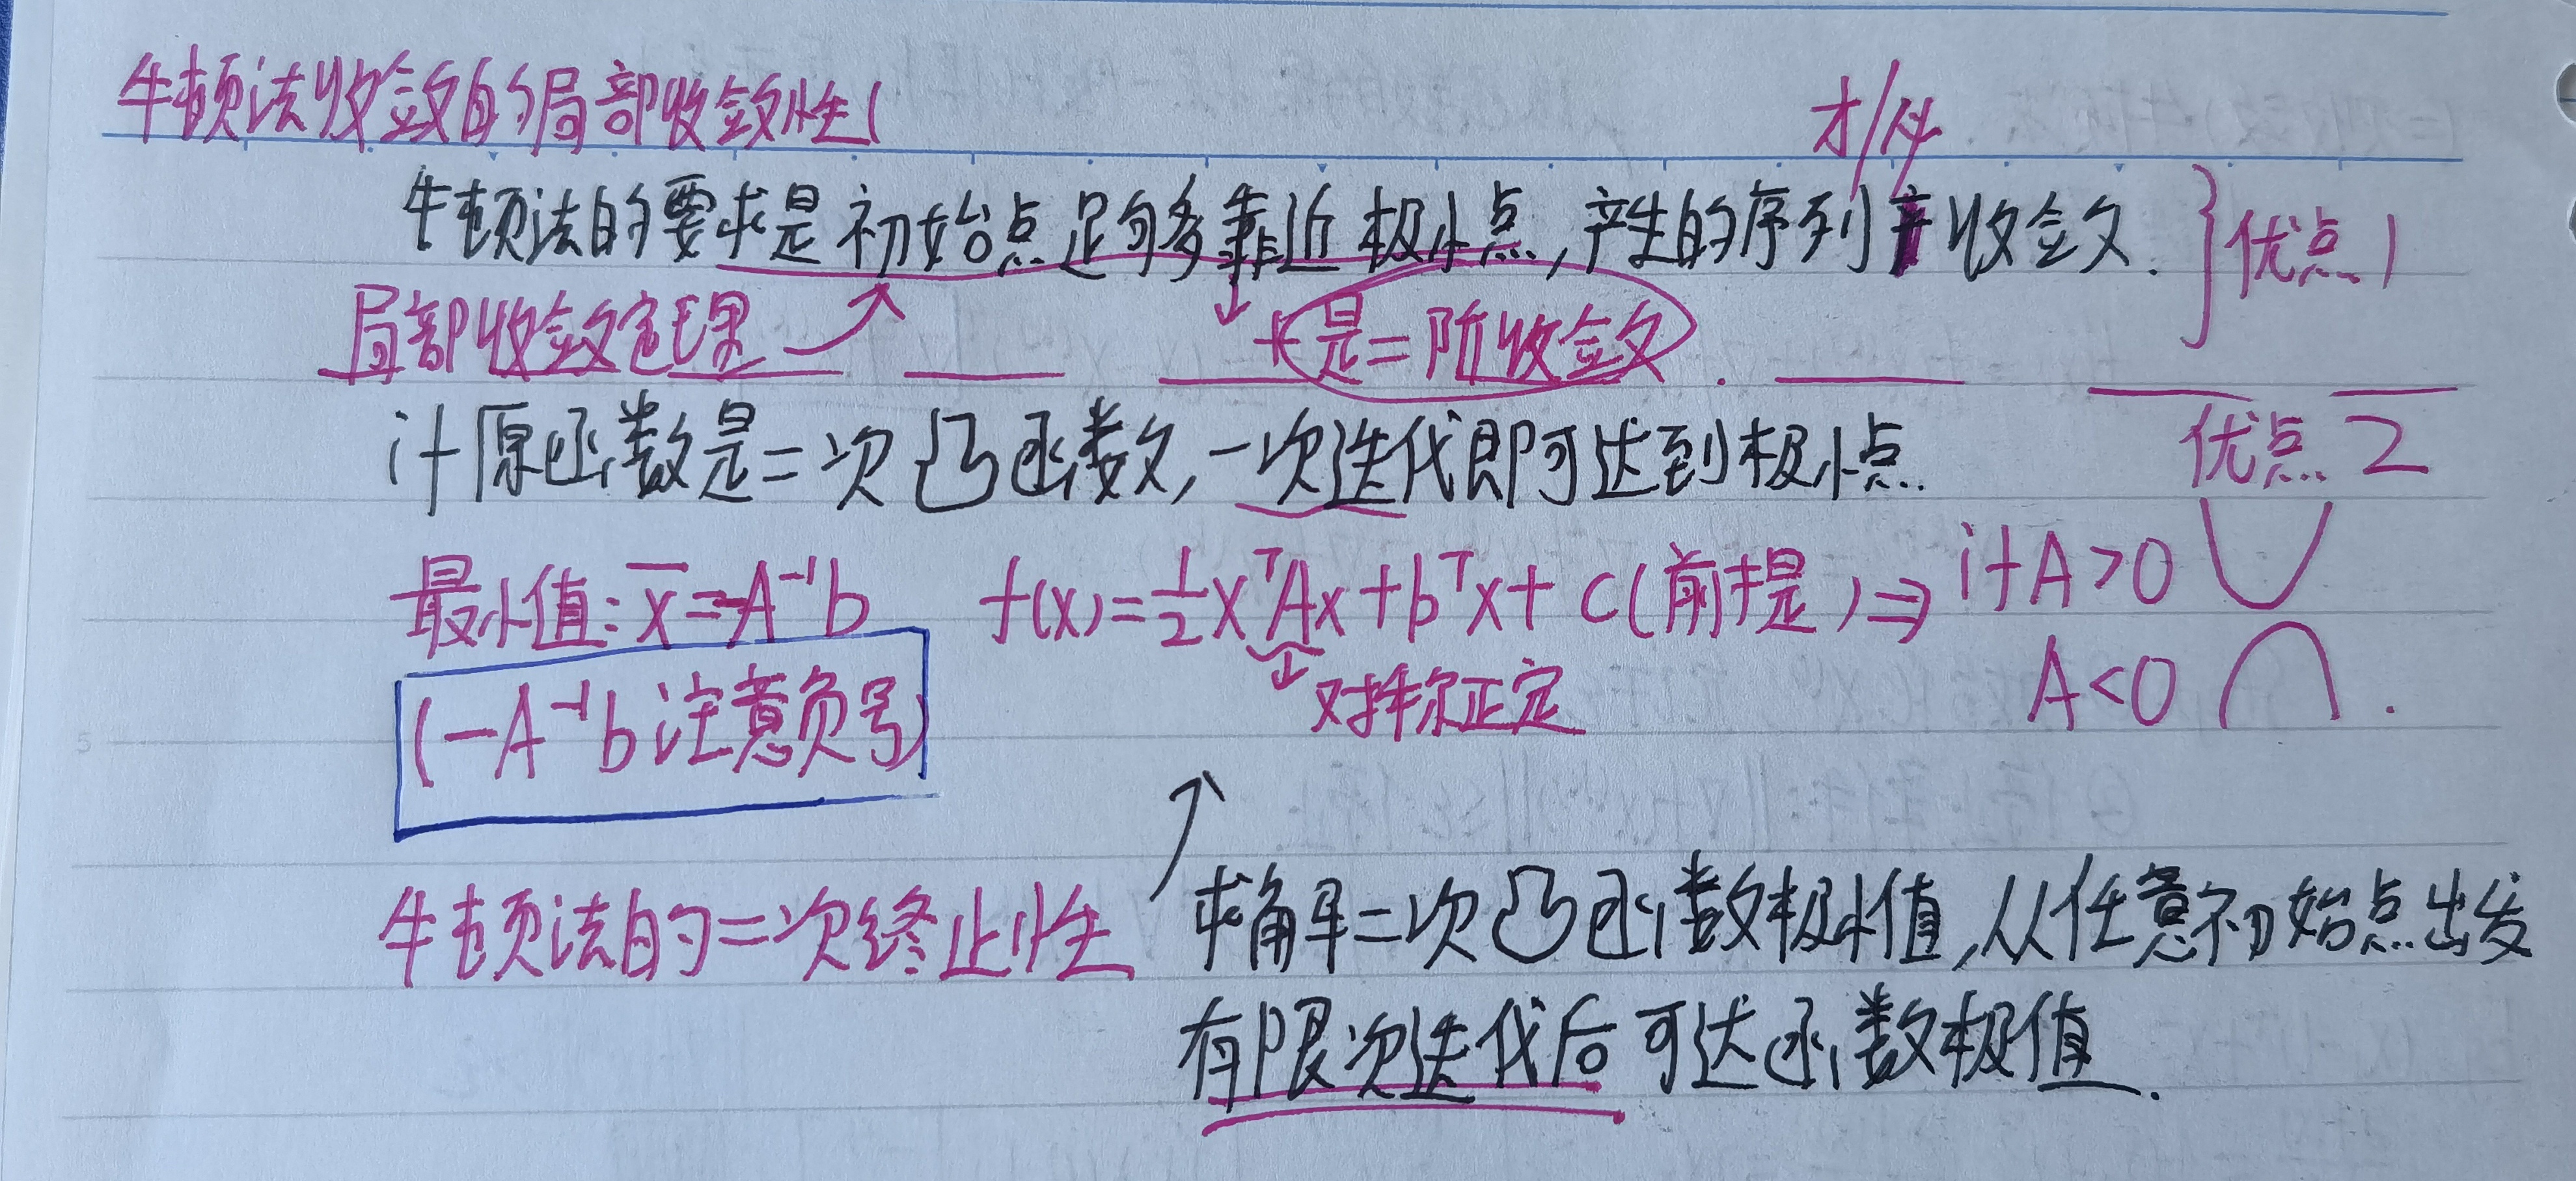 牛顿法收敛的局部收敛性!
才/必
牛顿法的要求是初始点足够靠近极小点,产生的序列收敛. }优点1
局部收敛定理 ↗ ↓ + 是二阶收敛.
if 原函数是二次凸函数,一次迭代即可达到极小点. 优点2
最小值:x̄=-A⁻¹b f(x)=½xᵀAx+bᵀx+c(前提)⇒ if A>0
(-A⁻¹b注意负号) 对称正定 A<0
牛顿法的二次终止性 求解二次凸函数极小值,从任意初始点出发
有限次迭代后可达函数极值.